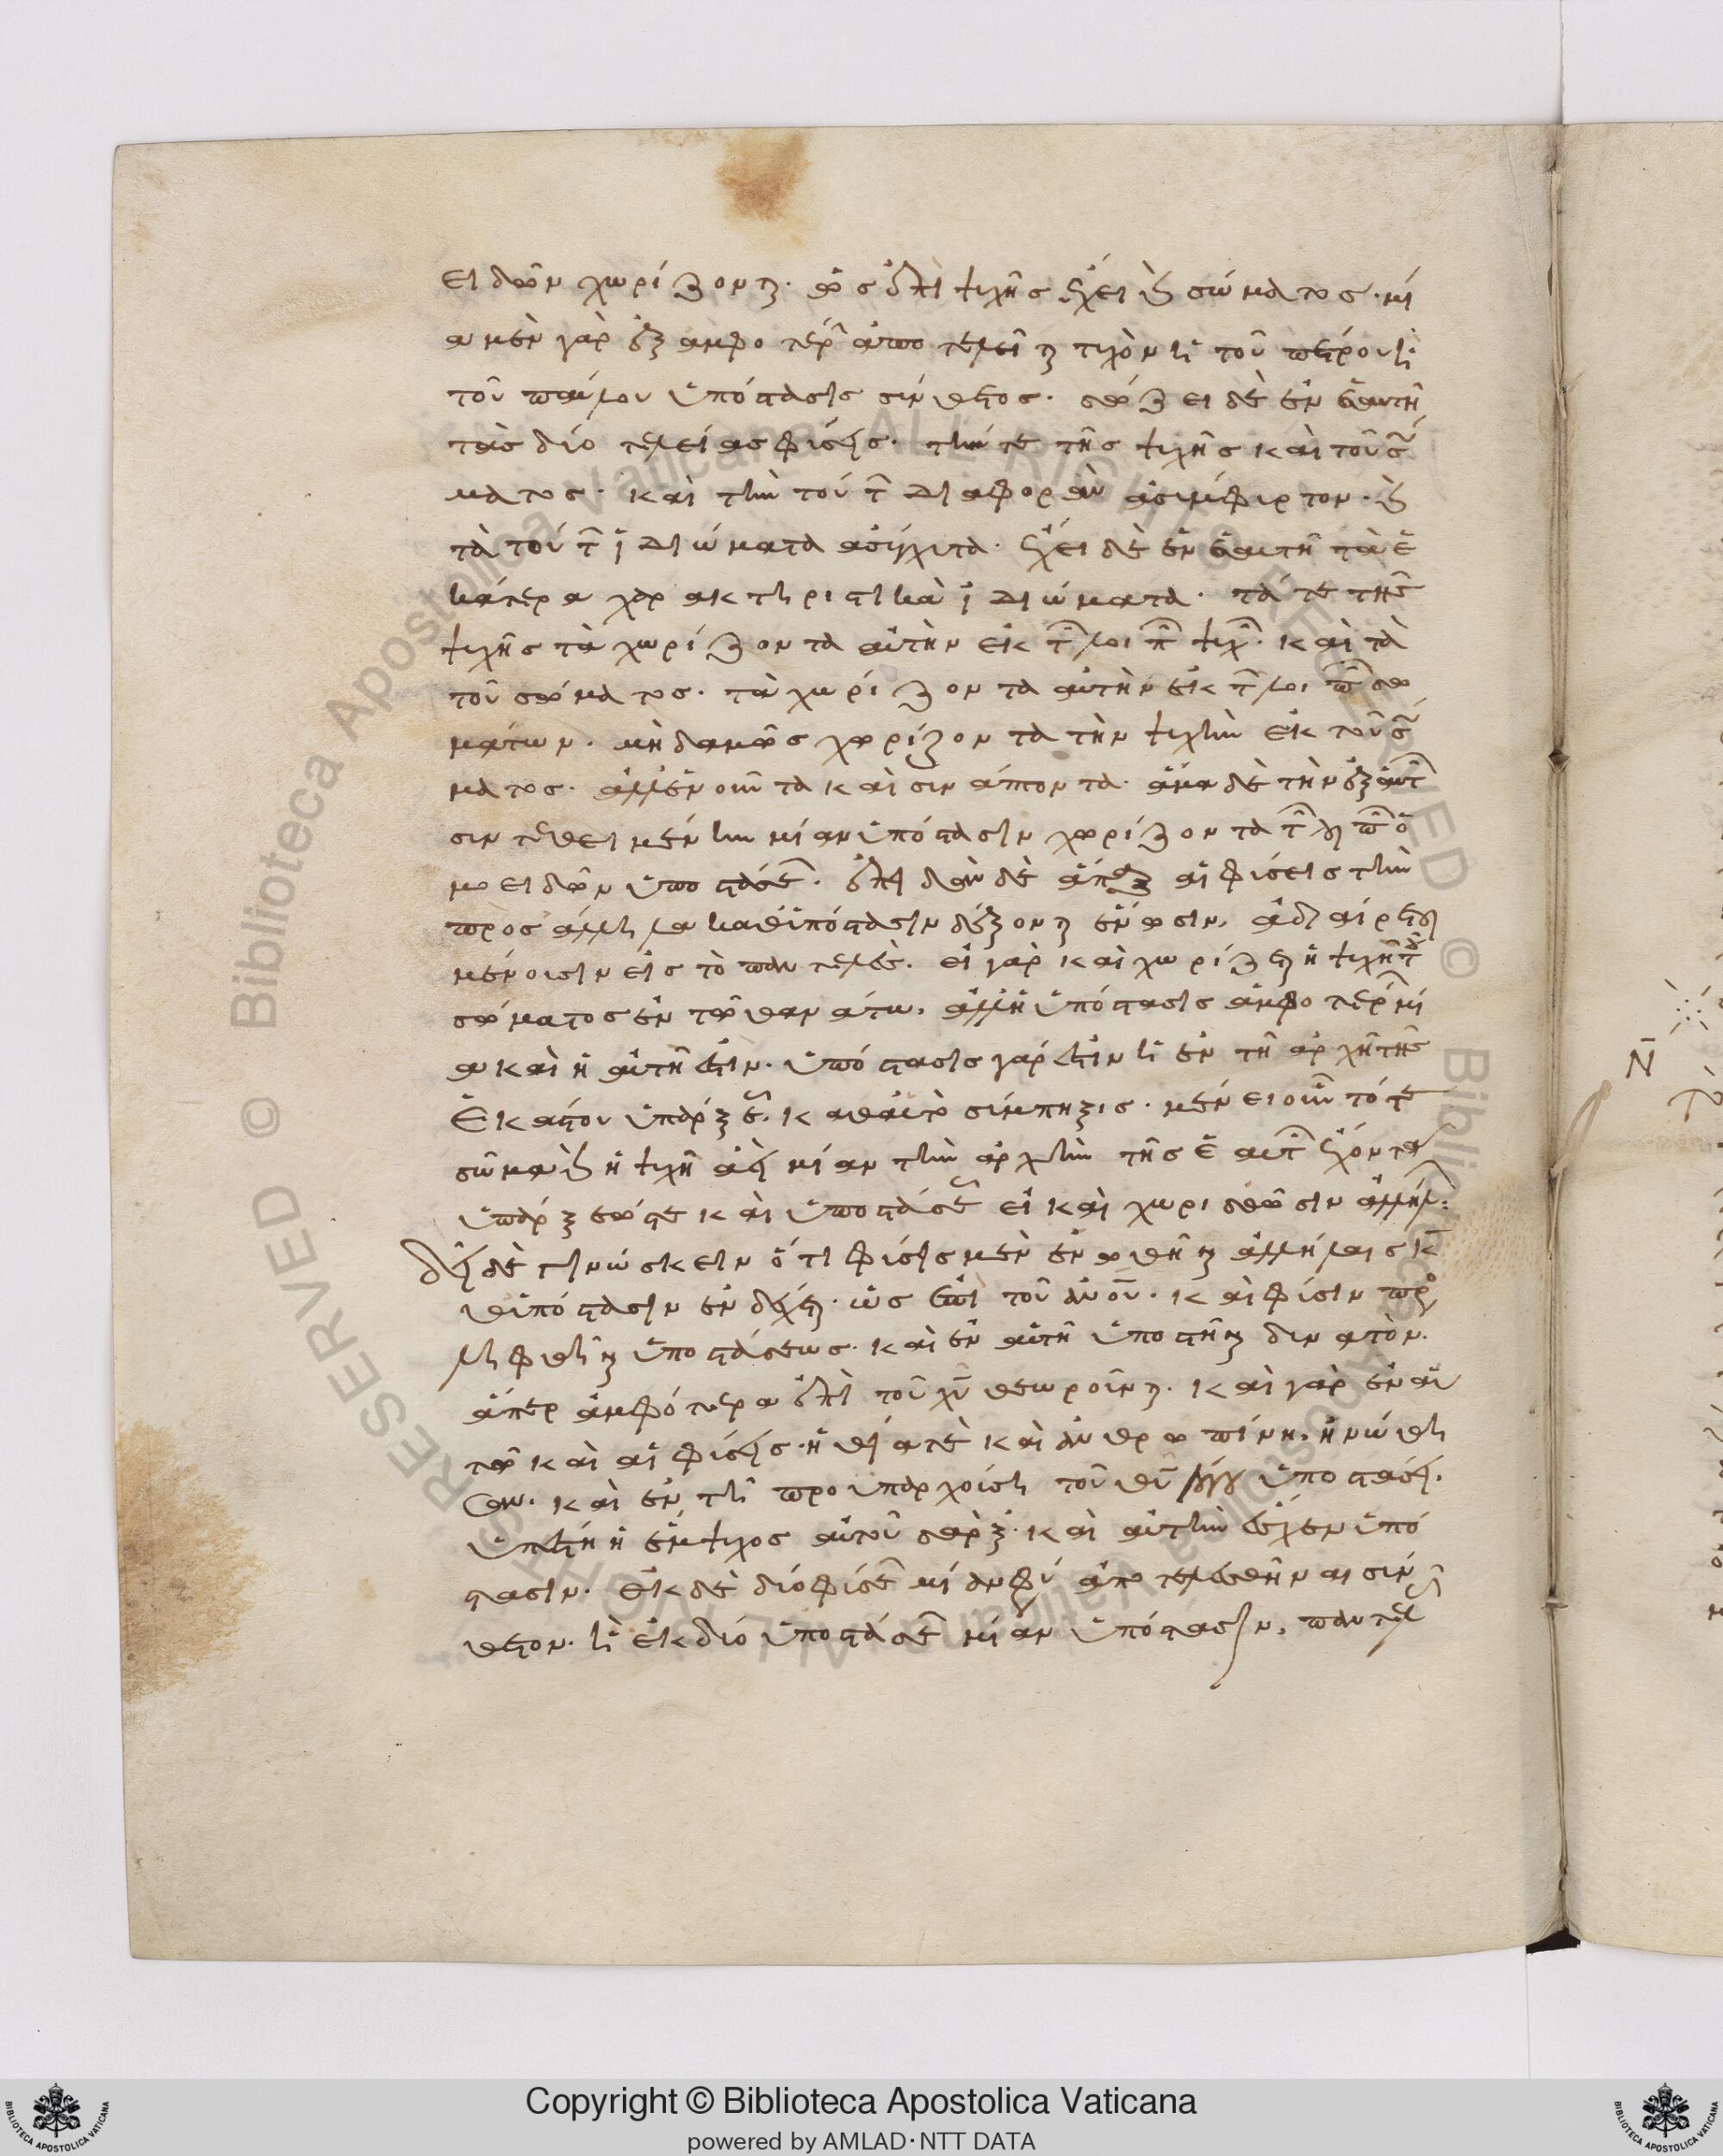 ειδῶν χωρίζονται. ὡς ἐπὶ ψυχῆς ἔχει καὶ σώματος. μί
α μὲν γὰρ ἐξ αμφοτέρων ἀποτελεῖται τυχὸν ἢ τοῦ πέτρου ἢ
τοῦ παύλου ὑπόστασις σύνθετος. σώζει δὲ ἐν ἑαυτῆ
τὰς δύο τελείας φύσεις. τήν τε τῆς ψυχῆς καὶ τοῦ σώ
ματος. καὶ τὴν τούτων διαφορὰν ἀσύμφυρτον. καὶ
τὰ τούτων ἰδιώματα ἀσύγχυτα. ἔχει δὲ ἐν ἑαυτῆ τὰ ἑ
κάτερα χαρακτηριστικὰ ἰδιώματα. τά τε τῆς
ψυχῆς τὰ χωρίζοντα αὐτὴν ἐκ τῶν λοιπῶν ψυχῶν. καὶ τὰ
τοῦ σώματος. τὰ χωρίζοντα αὐτὴν ἐκ τῶν λοιπῶν σω
μάτων. μηδαμῶς χωρίζοντα τὴν ψυχὴν ἐκ τοῦ σώ
ματος. ἀλλ' ἑνοῦντα καὶ συνάπτοντα. ἅμα δὲ τὴν ἐξ αὐτῶν
συντεθειμένην μίαν ὑπόστασιν χωρίζοντα τῶν λοιπῶν ὁ
μοειδῶν ὑποστάσεων. ἐπειδὰν δὲ ἅπαξ αἱ φύσεις τὴν
πρὸς ἄλληλα καθ' ὑπόστασιν δέξονται ἕνωσιν, ἀδιαίρετοι
μένουσιν εἰς τὸ παντελές. εἰ γὰρ καὶ χωρίζεται ἡ ψυχὴ τοῦ
σώματος ἐν τῶ θανάτω. ἀλλ' ἡ ὑπόστασις ἀμφοτέρων μί
α καὶ ἡ αὐτή ἐστιν. ὑπόστασις γάρ ἐστιν ἡ ἐν τῆ ἀρχῆ τῆς
ἑκάστου ὑπάρξεως. καθ' αὑτὸ σύμπηξις. μένει οὖν τό τε
σῶμα καὶ ἡ ψυχὴ ἀεὶ μίαν τὴν ἀρχὴν τῆς ἑαυτῶν ἔχοντα
ὑπάρξεώς τε καὶ ὑποστάσεως εἰ καὶ χωρισθῶσιν ἀλλήλων:
Δεῖ δὲ γινώσκειν ὅτι φύσις μὲν ἑνωθῆναι ἀλλήλαις κα
θ' ὑπόστασιν ἐνδέχεται. ὡς ἐπὶ τοῦ ανου. καὶ φύσιν προσ
ληφθῆναι ὑποστάσεως. καὶ ἐν αὐτῆ ὑποστῆναι δυνατὸν.
ἅπερ ἀμφότερα ἐπὶ τοῦ χυ θεωροῦνται. καὶ γὰρ ἐν αὐ
τῶ καὶ αἱ φύσεις. ἡ θεία τε καὶ ἀνθρωπίνη. ἡνώθη
σαν. καὶ ἐν τῆ προυπαρχούση τοῦ θυ λόγου ὑποστάσει.
ὑπέστη ἡ ἔμψυχος αὐτοῦ σάρξ. καὶ αὐτὴν ἔσχεν ὑπό
στασιν. ἐκ δὲ δύο φύσεων μίαν φύσιν ἀποτελεσθῆναι σύν
θετον. ἢ ἐκ δύο ὑποστάσεων μίαν ὑπόστασιν, παντελῶς
Copyright © Biblioteca Apostolica Vaticana
powered by AMLAD·NTT DATA